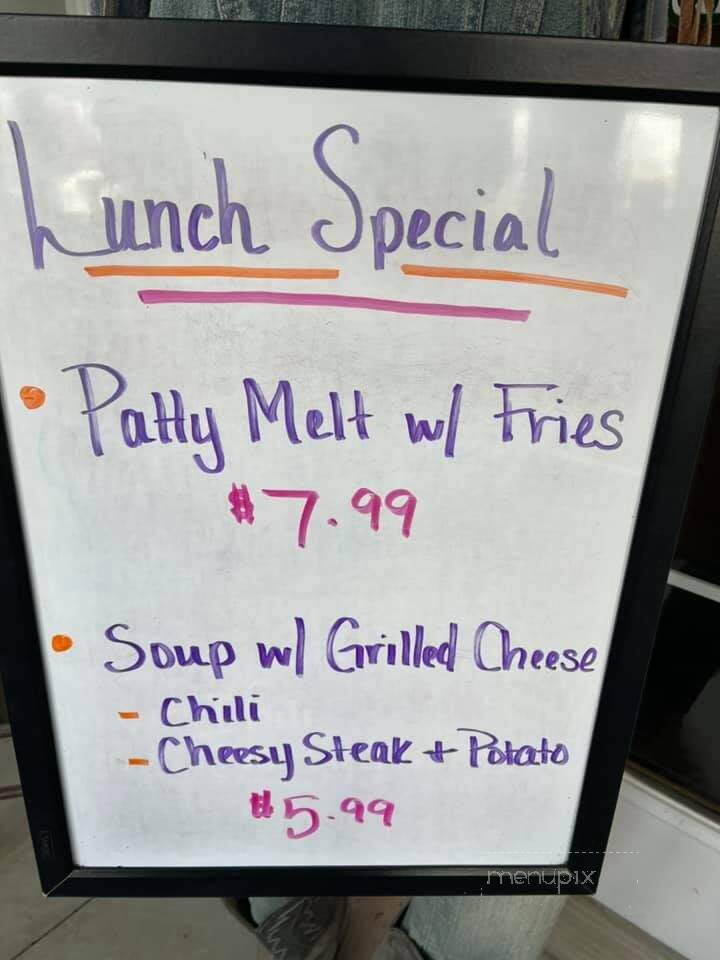 Lunch Special
• Patty Melt w/ Fries
$7.99
• Soup w/ Grilled Cheese
- Chili
- Cheesy Steak + Potato
$5.99
menupix